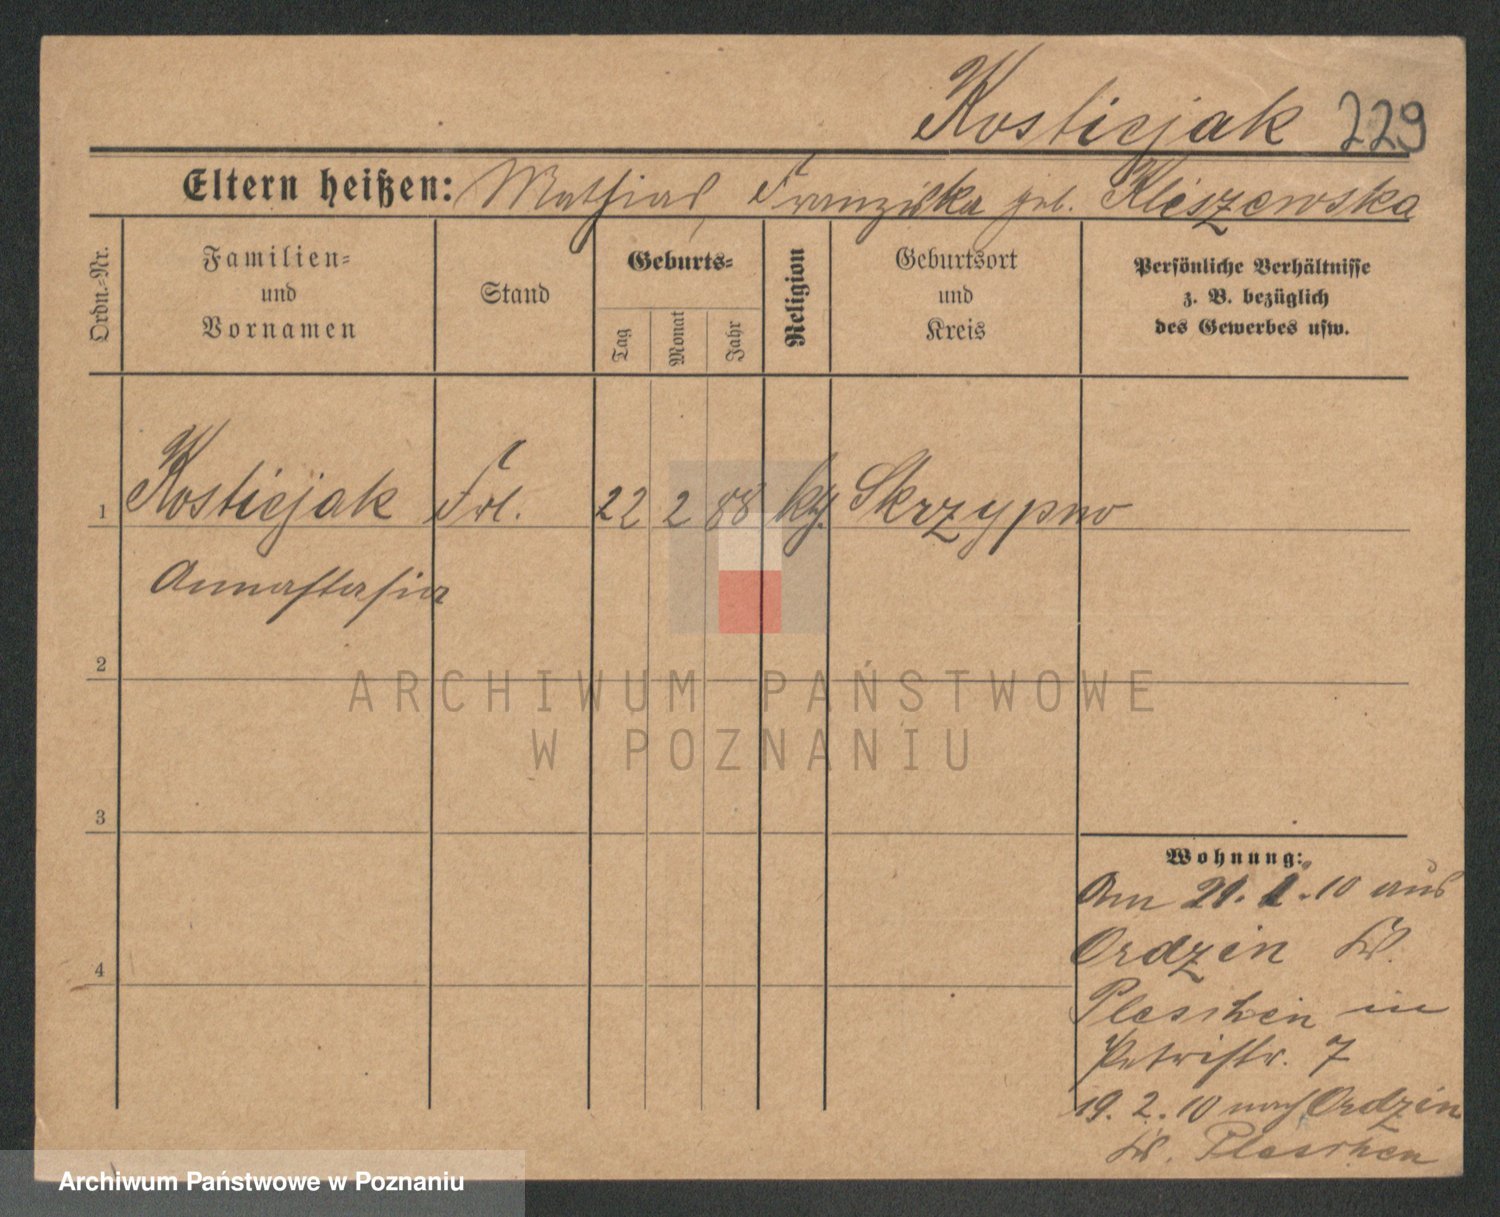 Kosticjak 229
Eltern heißen: Mathias, Franziska geb. Kliszewska
Ordn.-Nr.
Familien-
und
Vornamen
Stand
Geburts-
Tag
Monat
Jahr
Religion
Geburtsort
und
Kreis
Persönliche Verhältnisse
z. B. bezüglich
des Gewerbes usw.
1 Kosticjak Frl. 22 2 88 Skrzypno
Annastasia
2
3
4
Wohnung:
Am 21. 1. 10 aus
Ordzin Kr.
Pleschen in
Petristr. 7
19. 2. 10 nach Ordzin
Kr. Pleschen
ARCHIWUM PAŃSTWOWE
W POZNANIU
Archiwum Państwowe w Poznaniu